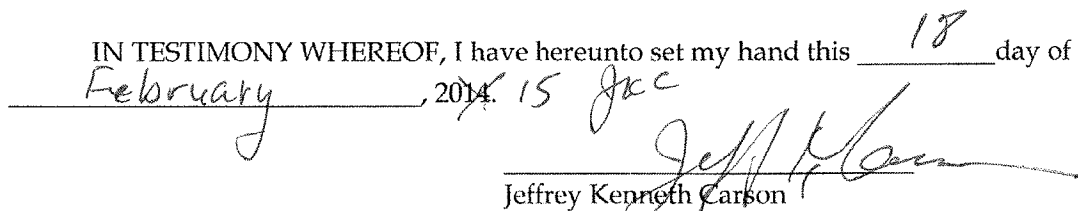 IN TESTIMONY WHEREOF, I have hereunto set my hand this 18 day of
February, 2014. 15 JKC
Jeffrey Kenneth Carson